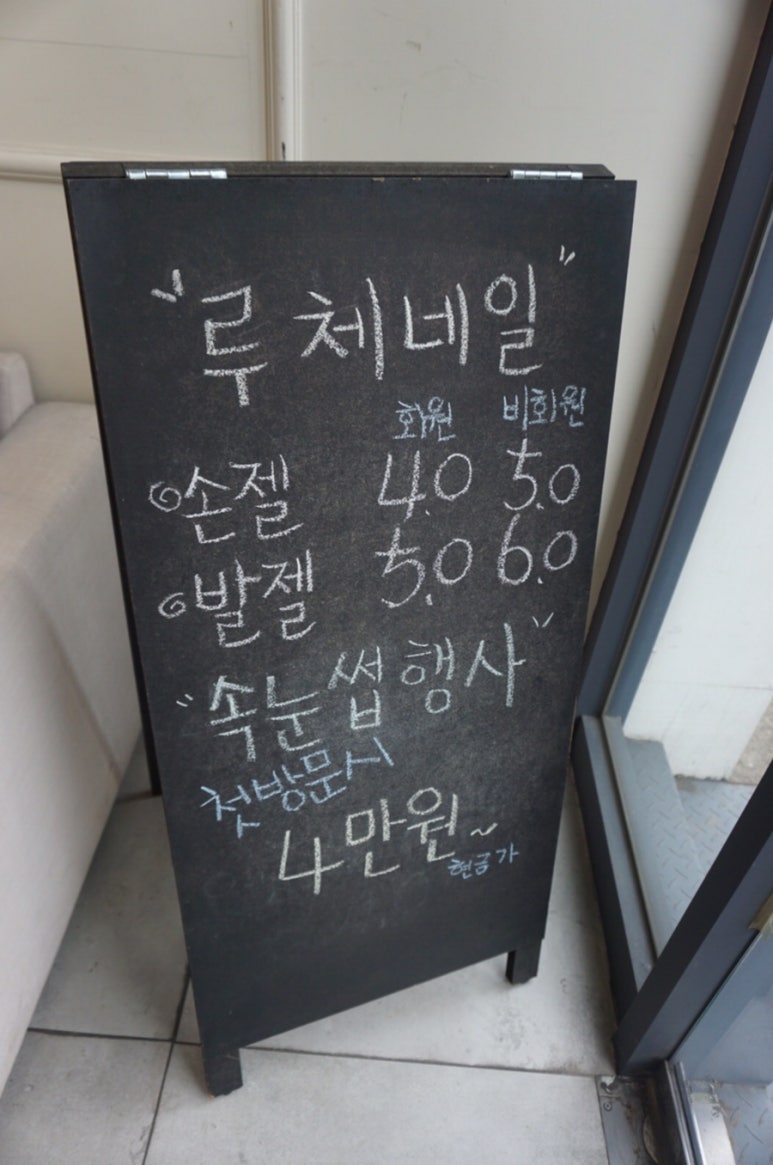 "루체네일"
회원 비회원
손젤 4.0 5.0
발젤 5.0 6.0
"속눈썹행사"
첫방문시
4만원~
현금가